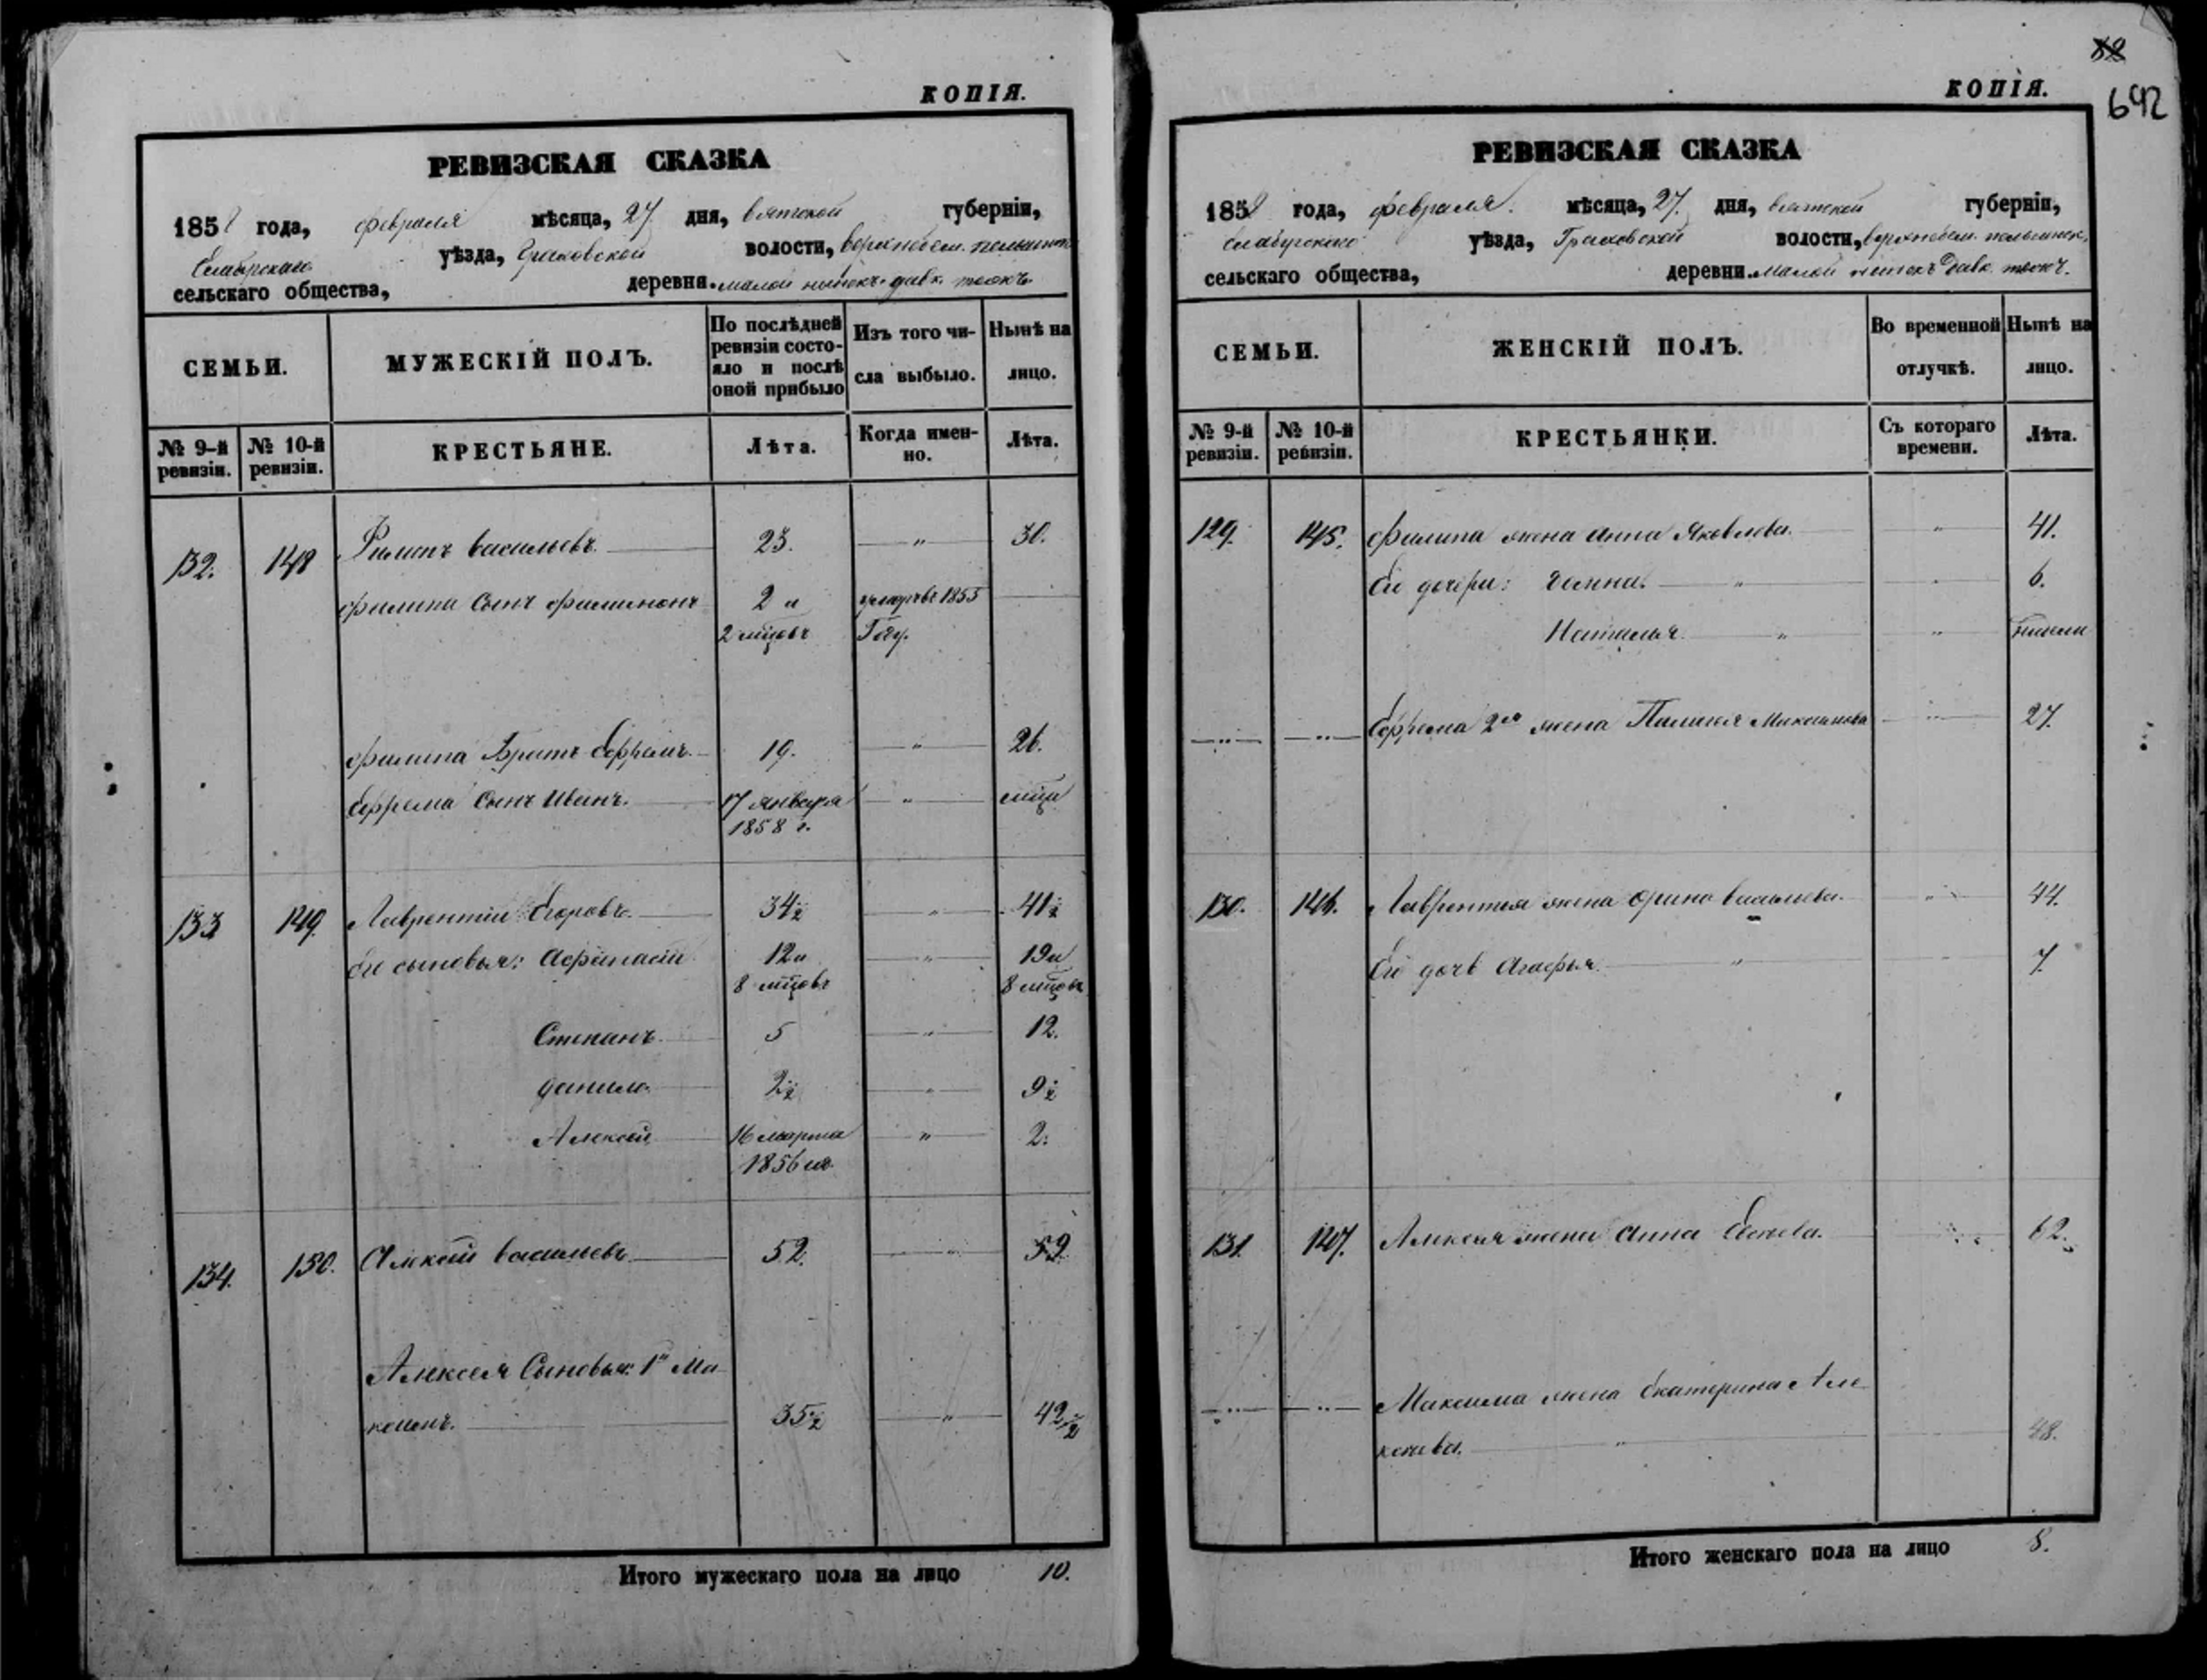 КОПІЯ.
РЕВИЗСКАЯ СКАЗКА
1858 года, февраля мѣсяца, 27 дня, вятской губерніи,
Елабужскаго уѣзда, Граховской волости,
сельскаго общества, деревни малой
СЕМЬИ.
МУЖЕСКІЙ ПОЛЪ.
По послѣдней ревизіи состо-
яло и послѣ оной прибыло
Изъ того чи-
сла выбыло.
Нынѣ на
лицо.
№ 9-й ревизіи.
№ 10-й ревизіи.
КРЕСТЬЯНЕ.
Лѣта.
Когда имен-
но.
Лѣта.
132. 148 Филипъ васильевъ 23. " 30.
Филипа Сынъ Филимонъ 2 и умеръ въ 1855
2 мцовъ Году.
Филипа Братъ Ефремъ 19. " 26.
Ефрема Сынъ Иванъ. 17 января " мца
1858 г.
133 149. Лаврентiй Егоровъ. 34½ " 41½
Его сыновья: 12 и " 19 и
8 мцовъ 8 мцовъ
Степанъ 5 " 12.
данило 2½ " 9½
Алексей 16 марта " 2.
1856
134. 150. Алексей васильевъ 52. " 59
Алексея Сыновья: 1й Ма
ксимъ. 35½ " 42½
Итого мужескаго пола на лицо 10.
82
692
КОПІЯ.
РЕВИЗСКАЯ СКАЗКА
1858 года, февраля мѣсяца, 27 дня, вятской губерніи,
Елабужскаго уѣзда, Граховской волости,
сельскаго общества, деревни малой
СЕМЬИ.
ЖЕНСКІЙ ПОЛЪ.
Во временной
отлучкѣ.
Нынѣ на
лицо.
№ 9-й ревизіи.
№ 10-й ревизіи.
КРЕСТЬЯНКИ.
Съ котораго
времени.
Лѣта.
129. 145. Филипа жена Анна Яковлева. " 41.
Его дочери: 6.
Наталья " " недели
Ефрема 2ая жена Пелагея Максимова " 27.
130. 146. Лаврентья жена Орина васильева. " 44.
Его дочь Агафья. " 7.
131. 147. Алексея жена Анна 62.
Максима жена Екатерина Але
ксеева. " 48.
Итого женскаго пола на лицо 8.